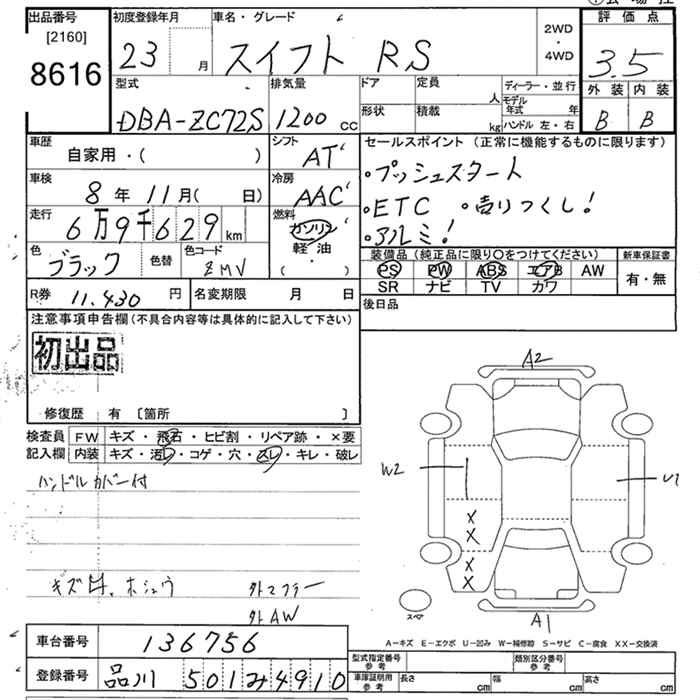 出品番号
[2160]
8616
初度登録年月
23 月
車名・グレード
スイフト RS
2WD
・
4WD
評価点
3.5
外装 内装
B B
型式
DBA-ZC72S
排気量
1200 cc
ドア
形状
定員 人
積載 kg
ディーラー・並行
モデル年式 年
ハンドル 左・右
車歴
自家用・( )
シフト
AT
車検
8年 11月( 日)
冷房
AAC
走行
6万9千629 km
燃料
ガソリン
軽・油
( )
色
ブラック
色替
色コード
ZMV
R券 11.430 円
名変期限 月 日
セールスポイント(正常に機能するものに限ります)
・プッシュスタート
・ETC ・売りつくし!
・アルミ!
装備品(純正品に限り○をつけてください)
PS PW ABS エアB AW
SR ナビ TV カワ
新車保証書
有・無
後日品
注意事項申告欄(不具合内容等は具体的に記入して下さい)
初出品
修復歴 有 [箇所 ]
検査員 FW キズ・飛石・ヒビ割・リペア跡・×要
記入欄 内装 キズ・汚レ・コゲ・穴・スレ・キレ・破レ
ハンドルカバー付
外マフラー
外AW
A2
W2
U1
X
X
X
X
スペア
A1
A−キズ E−エクボ U−凹み W−補修跡 S−サビ C−腐食 XX−交換済
車台番号 136756
登録番号 品川 501み4910
型式指定番号
参考
類別区分番号
参考
車庫証明用
参考
長さ cm 幅 cm 高さ cm